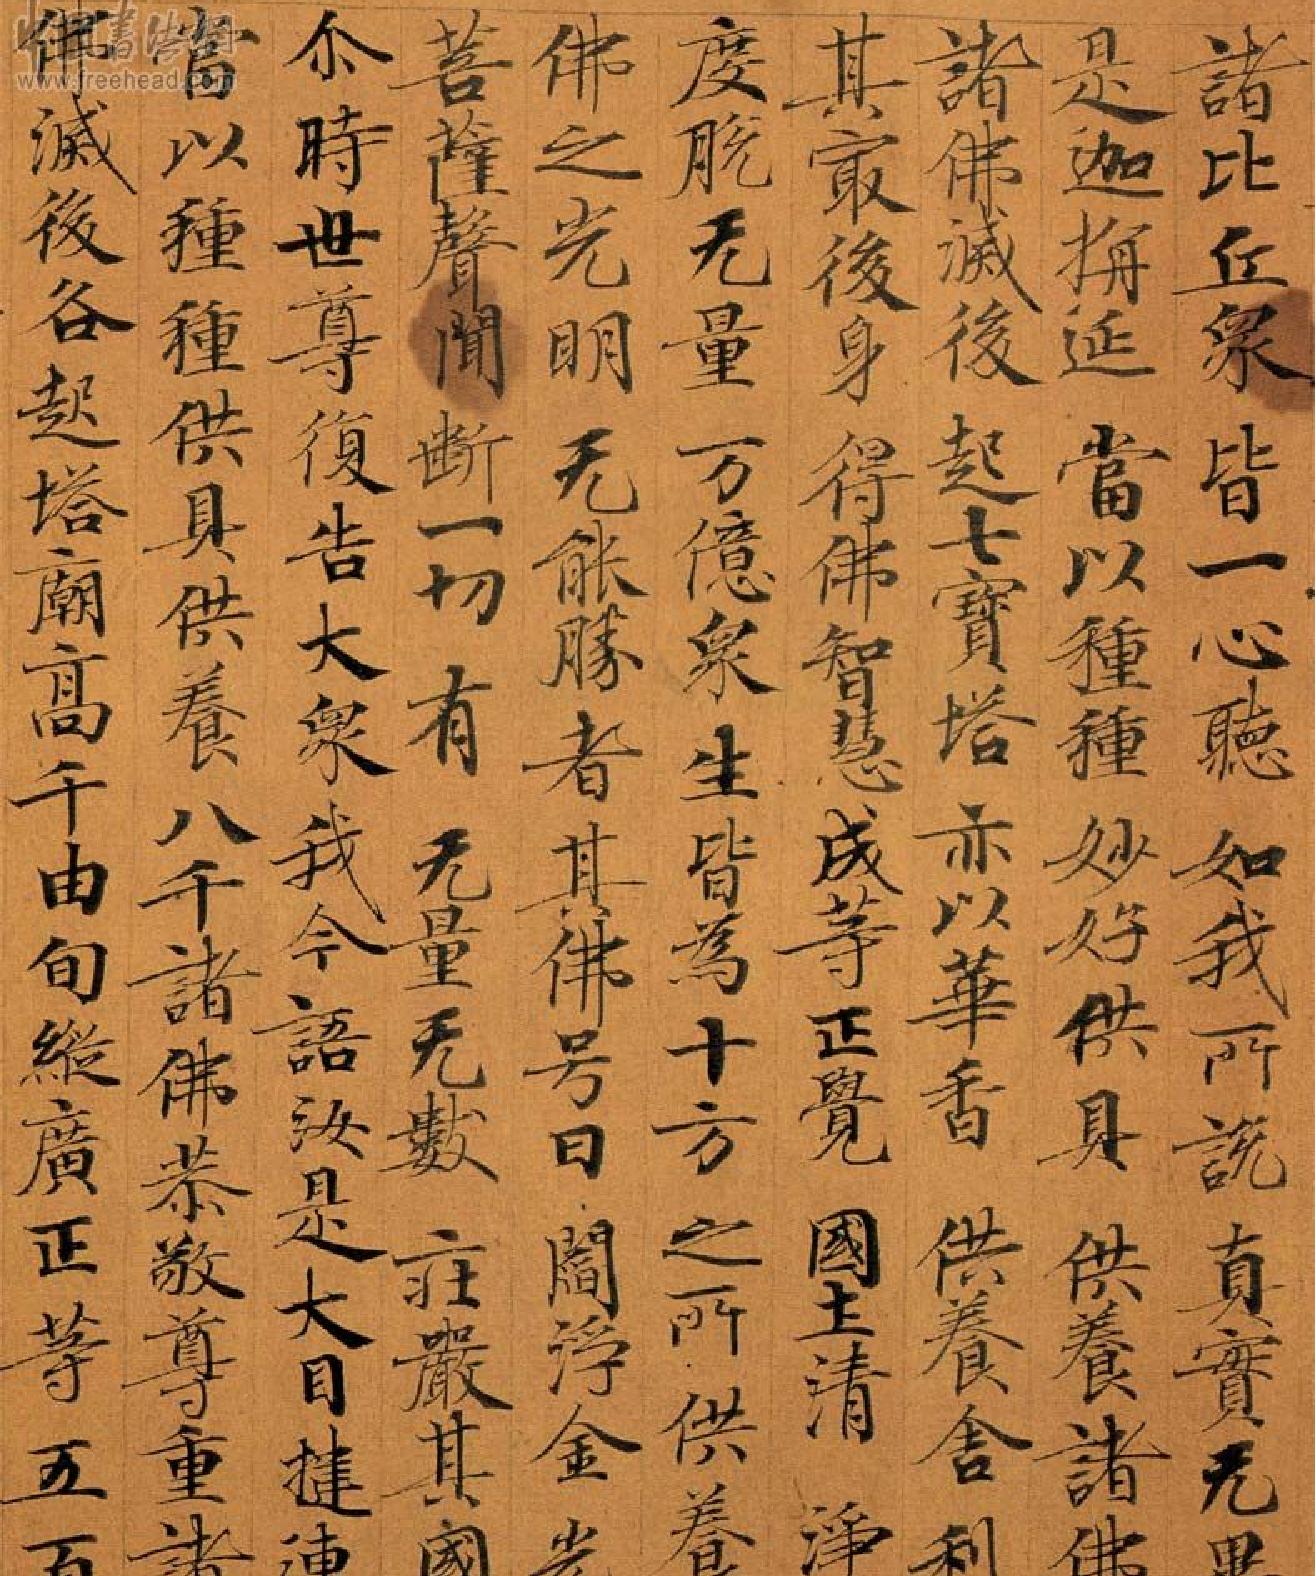 諸比丘衆皆一心聽如我所説真實无異
是迦旃延當以種種妙好供具供養諸佛
諸佛滅後起七寶塔亦以華香供養舍利
其冣後身得佛智慧成等正覺國土清淨
度脱无量万億衆生皆為十方之所供養
佛之光明无能勝者其佛号曰閻浮金光
菩薩聲聞斷一切有无量无數莊嚴其國
尒時世尊復告大衆我今語汝是大目揵連
當以種種供具供養八千諸佛恭敬尊重諸
佛滅後各起塔廟高千由旬縱廣正等五百
中国书法网
www.freehead.com